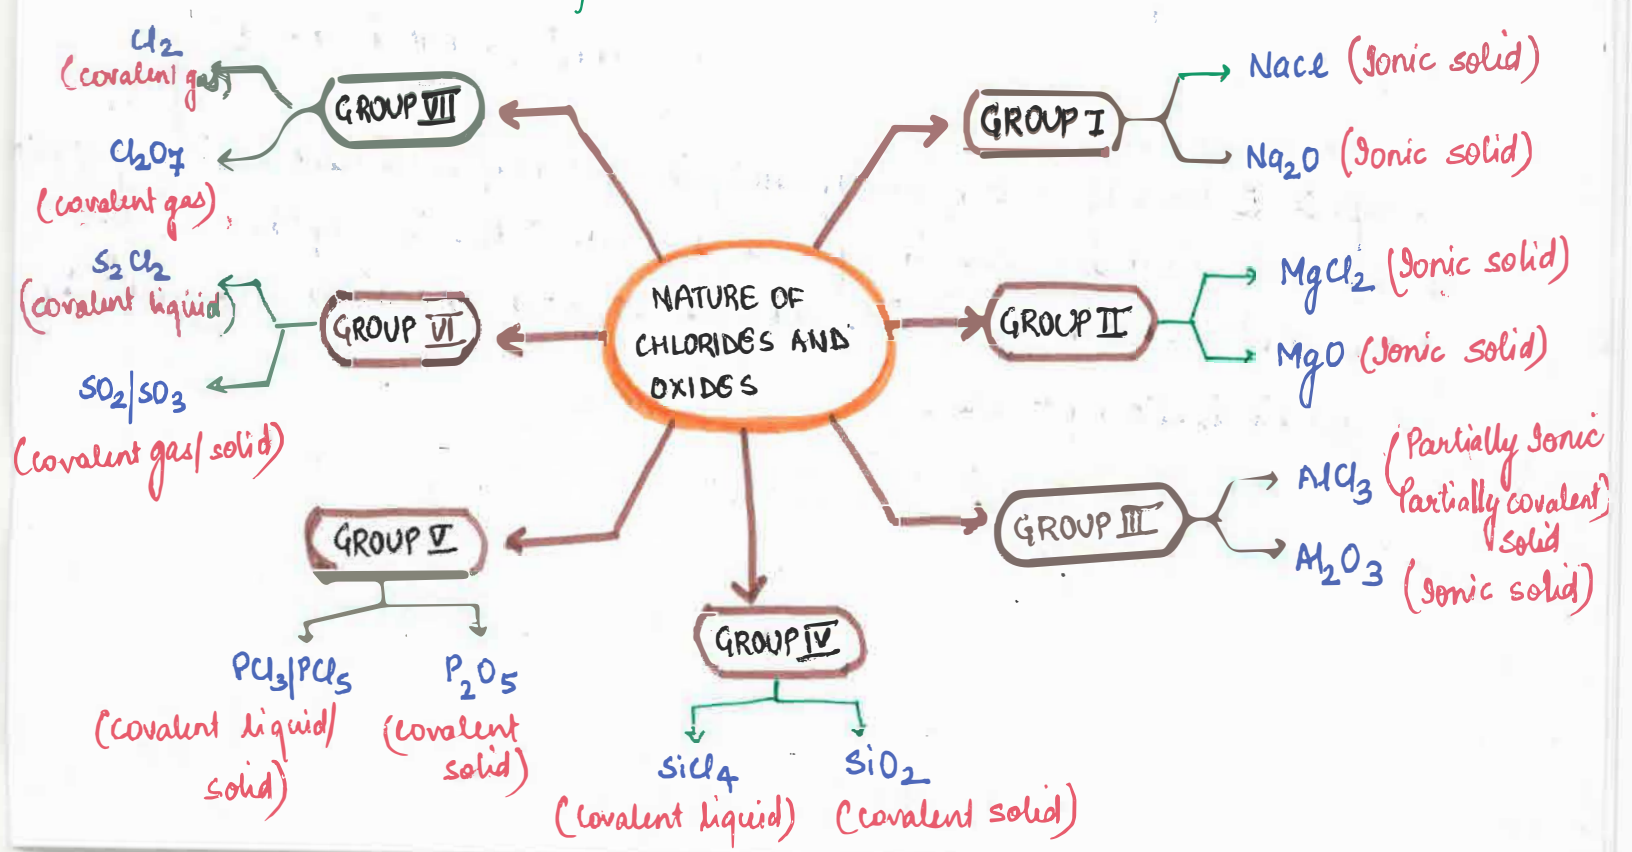 NATURE OF
CHLORIDES AND
OXIDES
GROUP I
NaCl (Ionic solid)
Na2O (Ionic solid)
GROUP II
MgCl2 (Ionic solid)
MgO (Ionic solid)
GROUP III
AlCl3 (Partially Ionic
Partially covalent)
solid
Al2O3 (Ionic solid)
GROUP IV
SiCl4
(covalent liquid)
SiO2
(covalent solid)
GROUP V
PCl3/PCl5
(covalent liquid/
solid)
P2O5
(covalent
solid)
GROUP VI
S2Cl2
(covalent liquid)
SO2/SO3
(covalent gas/solid)
GROUP VII
Cl2
(covalent gas)
Cl2O7
(covalent gas)